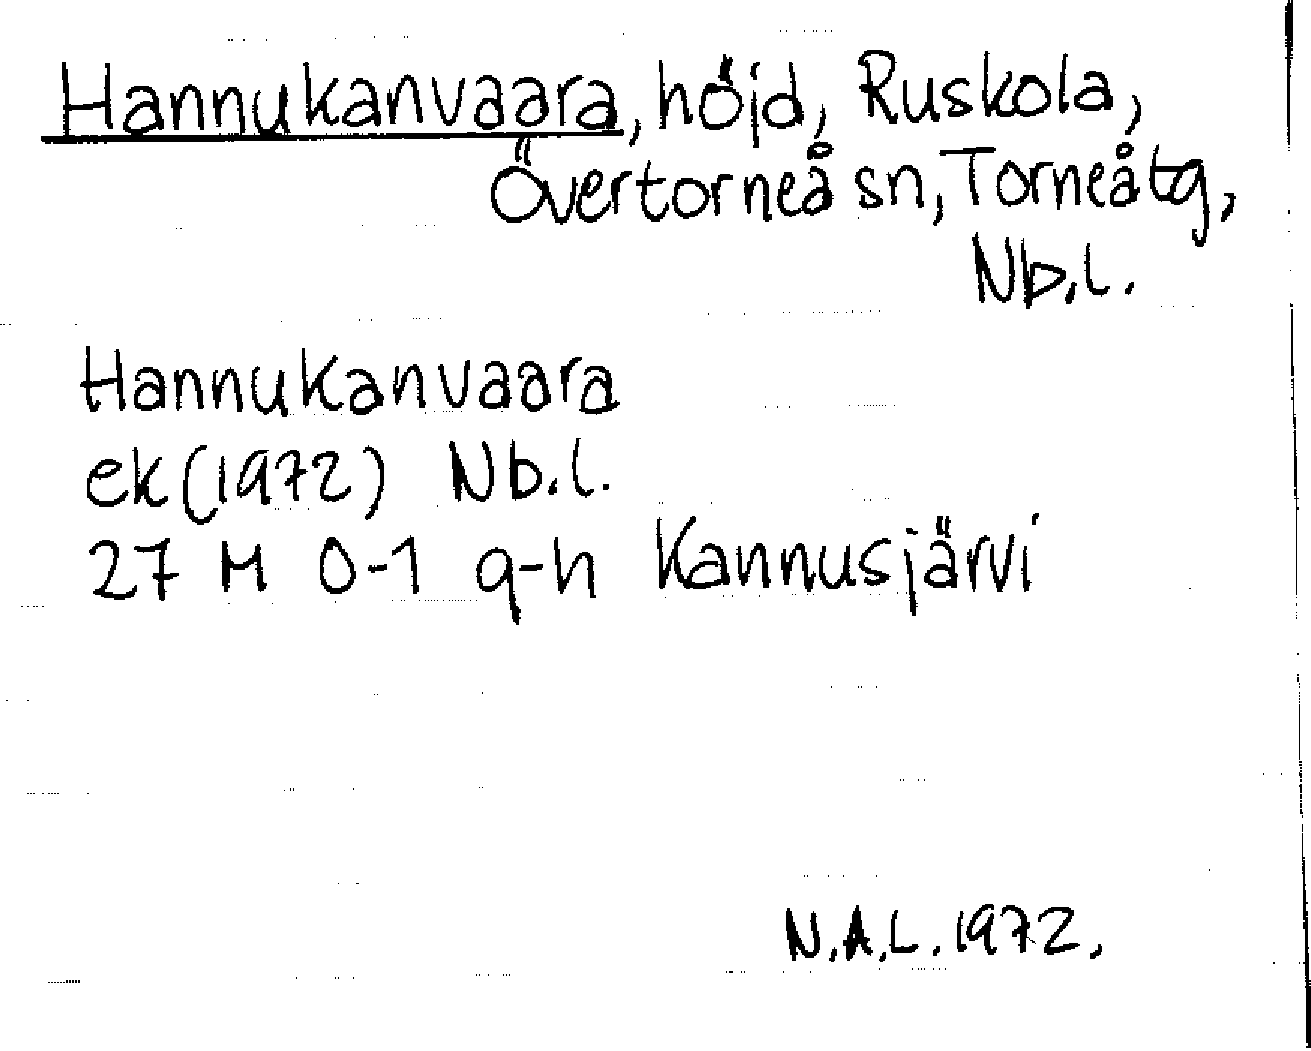 Hannukanvaara, höjd, Ruskola,
Övertorneå sn, Torneå tg,
Nb.l.
Hannukanvaara
ek (1972) Nb.l.
27 M 0-1 g-h Kannusjärvi
N.A.L. 1972.